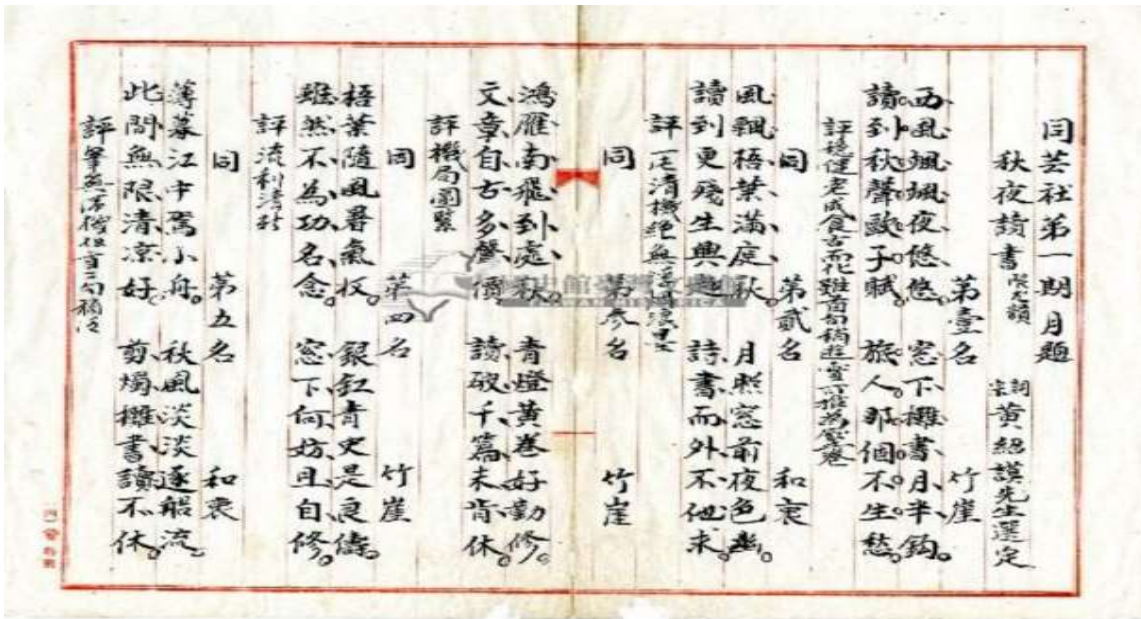 同芸社第一期月題
秋夜讀書 限尤韻 詞宗 黃紹謨先生選定
第壹名 竹崖
西風颯颯夜悠悠。窓下攤書月半鈎。
讀到秋聲歐子賦。旅人那個不生愁。
評 穩健老成食古而化雖首句稍
同 第貳名 和衷
風飄梧葉滿庭秋。月照窓前夜色幽。
讀到更殘生興趣。詩書而外不他求。
評 一片清機絕無
同 第參名 竹崖
鴻雁南飛到處秋。青燈黃卷好勤修。
文章自古多聲價。讀破千篇未肯休。
評 機局圓緊
同 第四名 竹崖
梧葉隨風暑氣收。銀釭青史是良儔。
雖然不為功名念。窓下何妨且自修。
評 流利清新
同 第五名 和衷
薄暮江中駕小舟。秋風淡淡逐船流。
此間無限清涼好。剪燭攤書讀不休。
評 筆無滯機但首二句稍泛